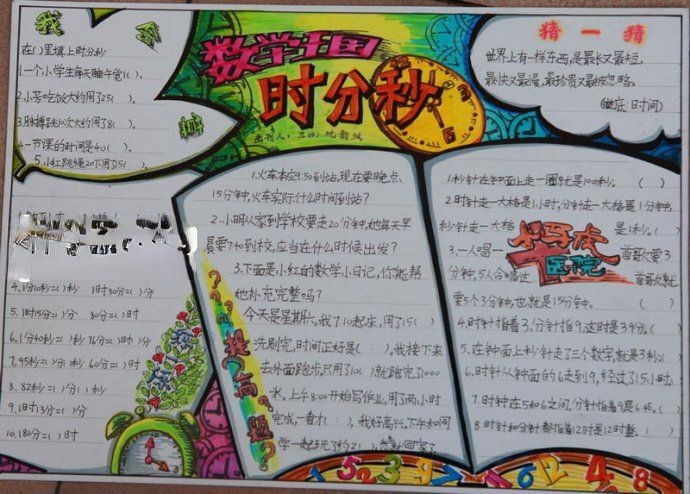 数学王国
时分秒
我会
在( )里填上时分秒
1.一个小学生每天睡午觉1( )。
2.小芳吃饭大约用了25( )。
3.脉搏跳10次大约用了8( )。
4.一节课的时间是40( )。
5.小红跳绳20下用了15( )
4.1分10秒=( )秒 1时30分=( )分
5.1时5分=( )分 80分=( )时
6.1分40秒=( )秒 76分=( )时( )分
7.95秒=( )分( )秒 60分=( )时
8.82秒=( )分( )秒
9.1时13分=( )分
10.180分=( )时
猜一猜
世界上有一样东西,是最长又最短,
最快又最慢,最珍贵又最被忽略。
(谜底:时间)
1.火车本应9:50到站,现在要晚点
15分钟,火车实际什么时间到站?
2.小明从家到学校要走20分钟,她每天早
晨要7:40到校,应当在什么时候出发?
3.下面是小红的数学小日记,你能帮
她补充完整吗?
今天是星期六,我7:10起床,用了15( )
洗刷完,时间正好是( : )。我接下来
去外面跑步,只用了10( )就跑完了1000
米。上午8:00开始写作业,用了两小时
完成,一看才( ),我好高兴。下午和同
学一起玩了约2( ),
提高题
1.秒针在钟面上走一圈就是100秒。( )
2.时针走一大格是1小时,分针走一大格是1分钟,
秒针走一大格 是1秒。( )
小马虎
医院
3.一人唱一 首歌要3
分钟,5人合唱这 首歌也就
要5个3分钟,也就是15分钟。( )
4.时针指着3,分针指9,这时是3:9分。( )
5.在钟面上秒针走了三个数字,就是3秒。( )
6.时针从钟面的6走到9,经过了15小时。
7.时钟在5和6之间,分针指着9是6:45。( )
8.时针和分针都指着12时是12时整。( )